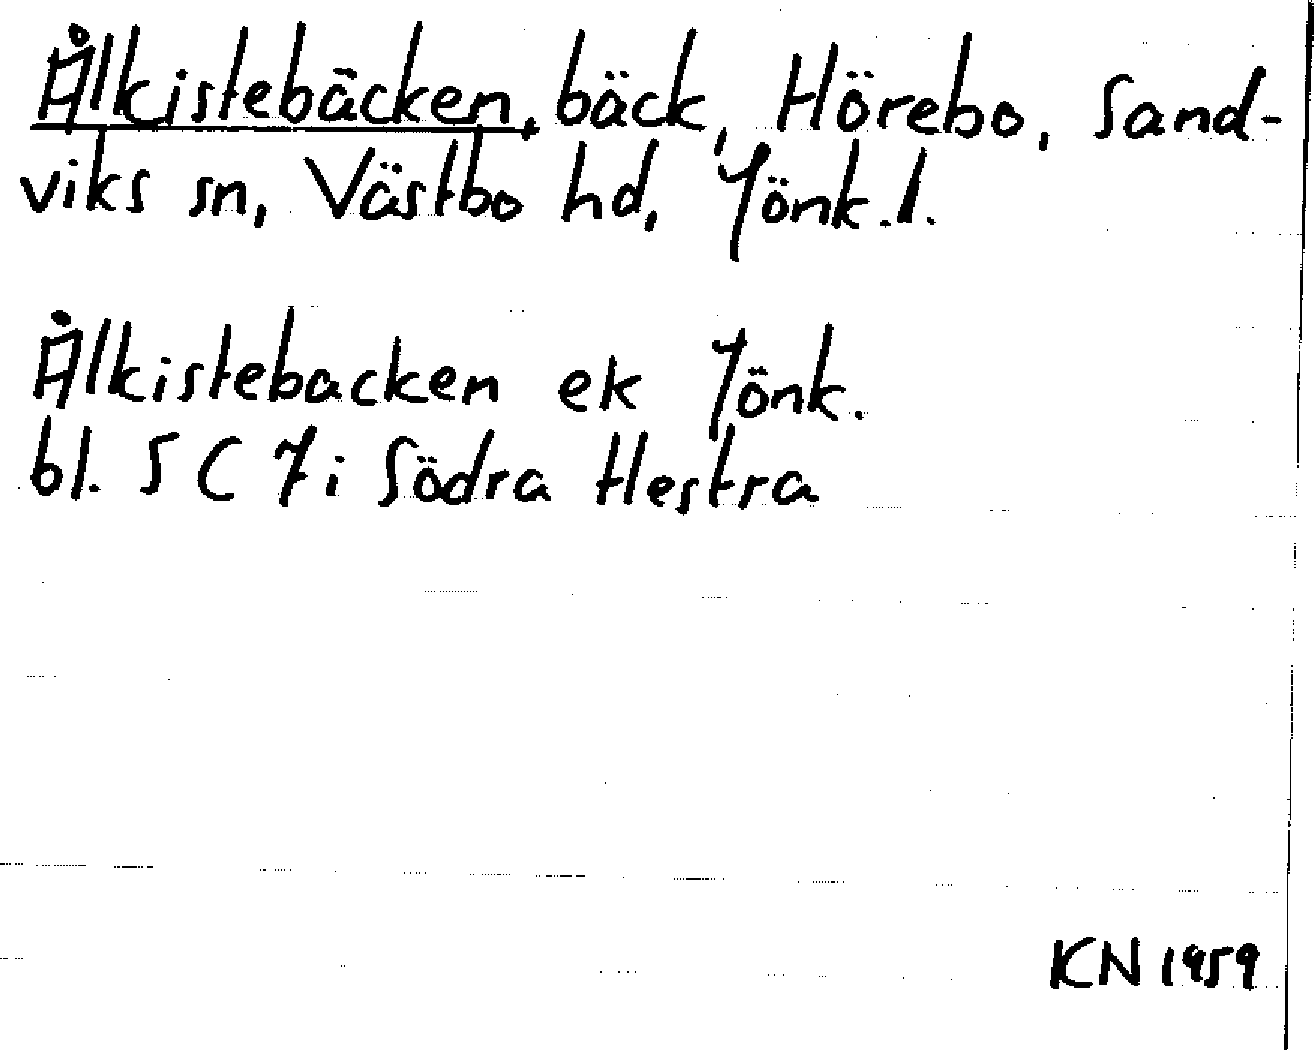 Ålkistebäcken, bäck, Hörebo, Sand-
viks sn, Västbo hd, Jönk.l.
Ålkistebacken ek Jönk.
bl. 5 C 7i Södra Hestra
KN 1959